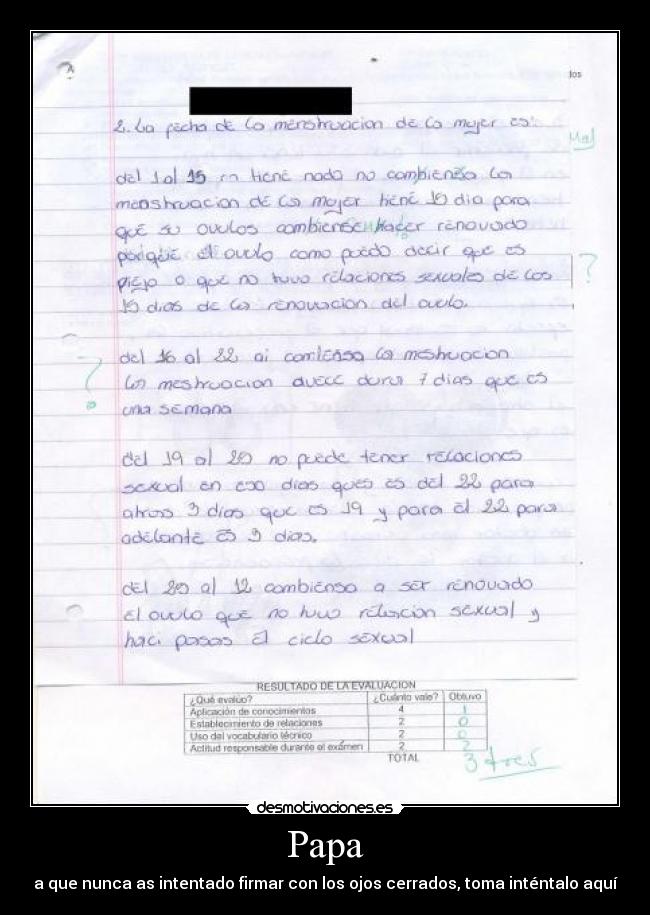 los
2. La fecha de la menstruacion de la mujer es:
Mal
del 1 al 15 tiene nada no combiensa la
menstruacion de la mujer tiene 15 dia para
que su ovulos combiense hacer renovado
porque el ovulo como puedo decir que es
piejo o que no tuvo relaciones sexuales de los
15 dias de la renovacion del ovulo.
?
del 16 al 22 ai comiensa la mestruacion
?
la mestruacion duece durar 7 dias que es
una semana
del 19 al 25 no puede tener relaciones
sexual en eso dias ques es del 22 para
atras 3 dias que es 19 y para el 22 para
adelante es 3 dias.
del 25 al 12 combiensa a ser renovado
el ovulo que no tuvo relacion sexual y
haci pasas el ciclo sexual
RESULTADO DE LA EVALUACION
¿Qué evalúo? ¿Cuánto vale? Obtuvo
Aplicación de conocimientos 4 1
Establecimiento de relaciones 2 0
Uso del vocabulario técnico 2 0
Actitud responsable durante el exámen 2 2
TOTAL 3 tres
desmotivaciones.es
Papa
a que nunca as intentado firmar con los ojos cerrados, toma inténtalo aquí